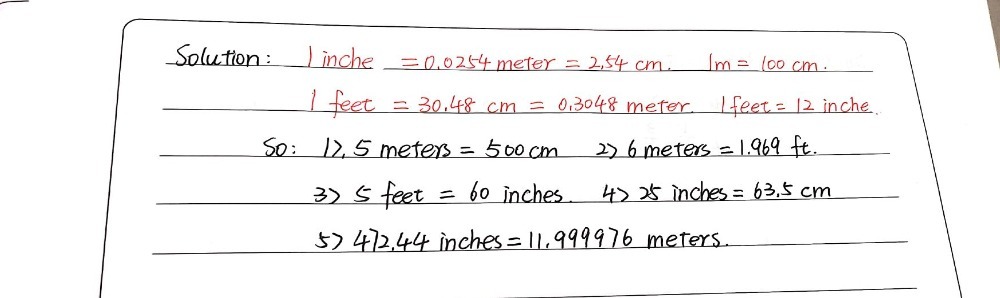 Solution: 1 inche = 0.0254 meter = 2.54 cm. 1m = 100 cm.
1 feet = 30.48 cm = 0.3048 meter. 1 feet = 12 inche.
So: 1>. 5 meters = 500 cm 2> 6 meters = 1.969 ft.
3> 5 feet = 60 inches. 4> 25 inches = 63.5 cm
5> 472.44 inches = 11.999976 meters.